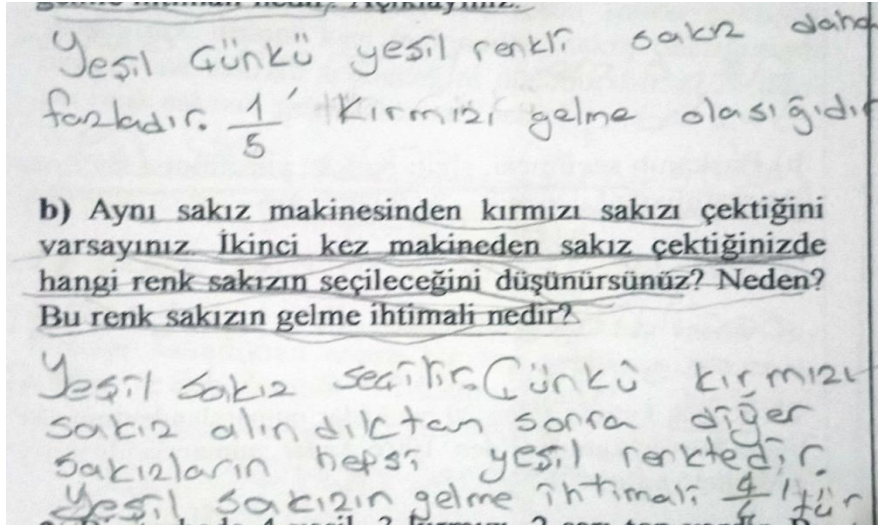 Yeşil Günkü yeşil renkli sakız daha
fazladır. 1/5' Kırmızı gelme olasığıdır
b) Aynı sakız makinesinden kırmızı sakızı çektiğini
varsayınız. İkinci kez makineden sakız çektiğinizde
hangi renk sakızın seçileceğini düşünürsünüz? Neden?
Bu renk sakızın gelme ihtimali nedir?
Yeşil sakız seçilir. Çünkü kırmızı
sakız alındıktan sonra diğer
sakızların hepsi yeşil renktedir.
Yeşil sakızın gelme ihtimali 4/4'tür